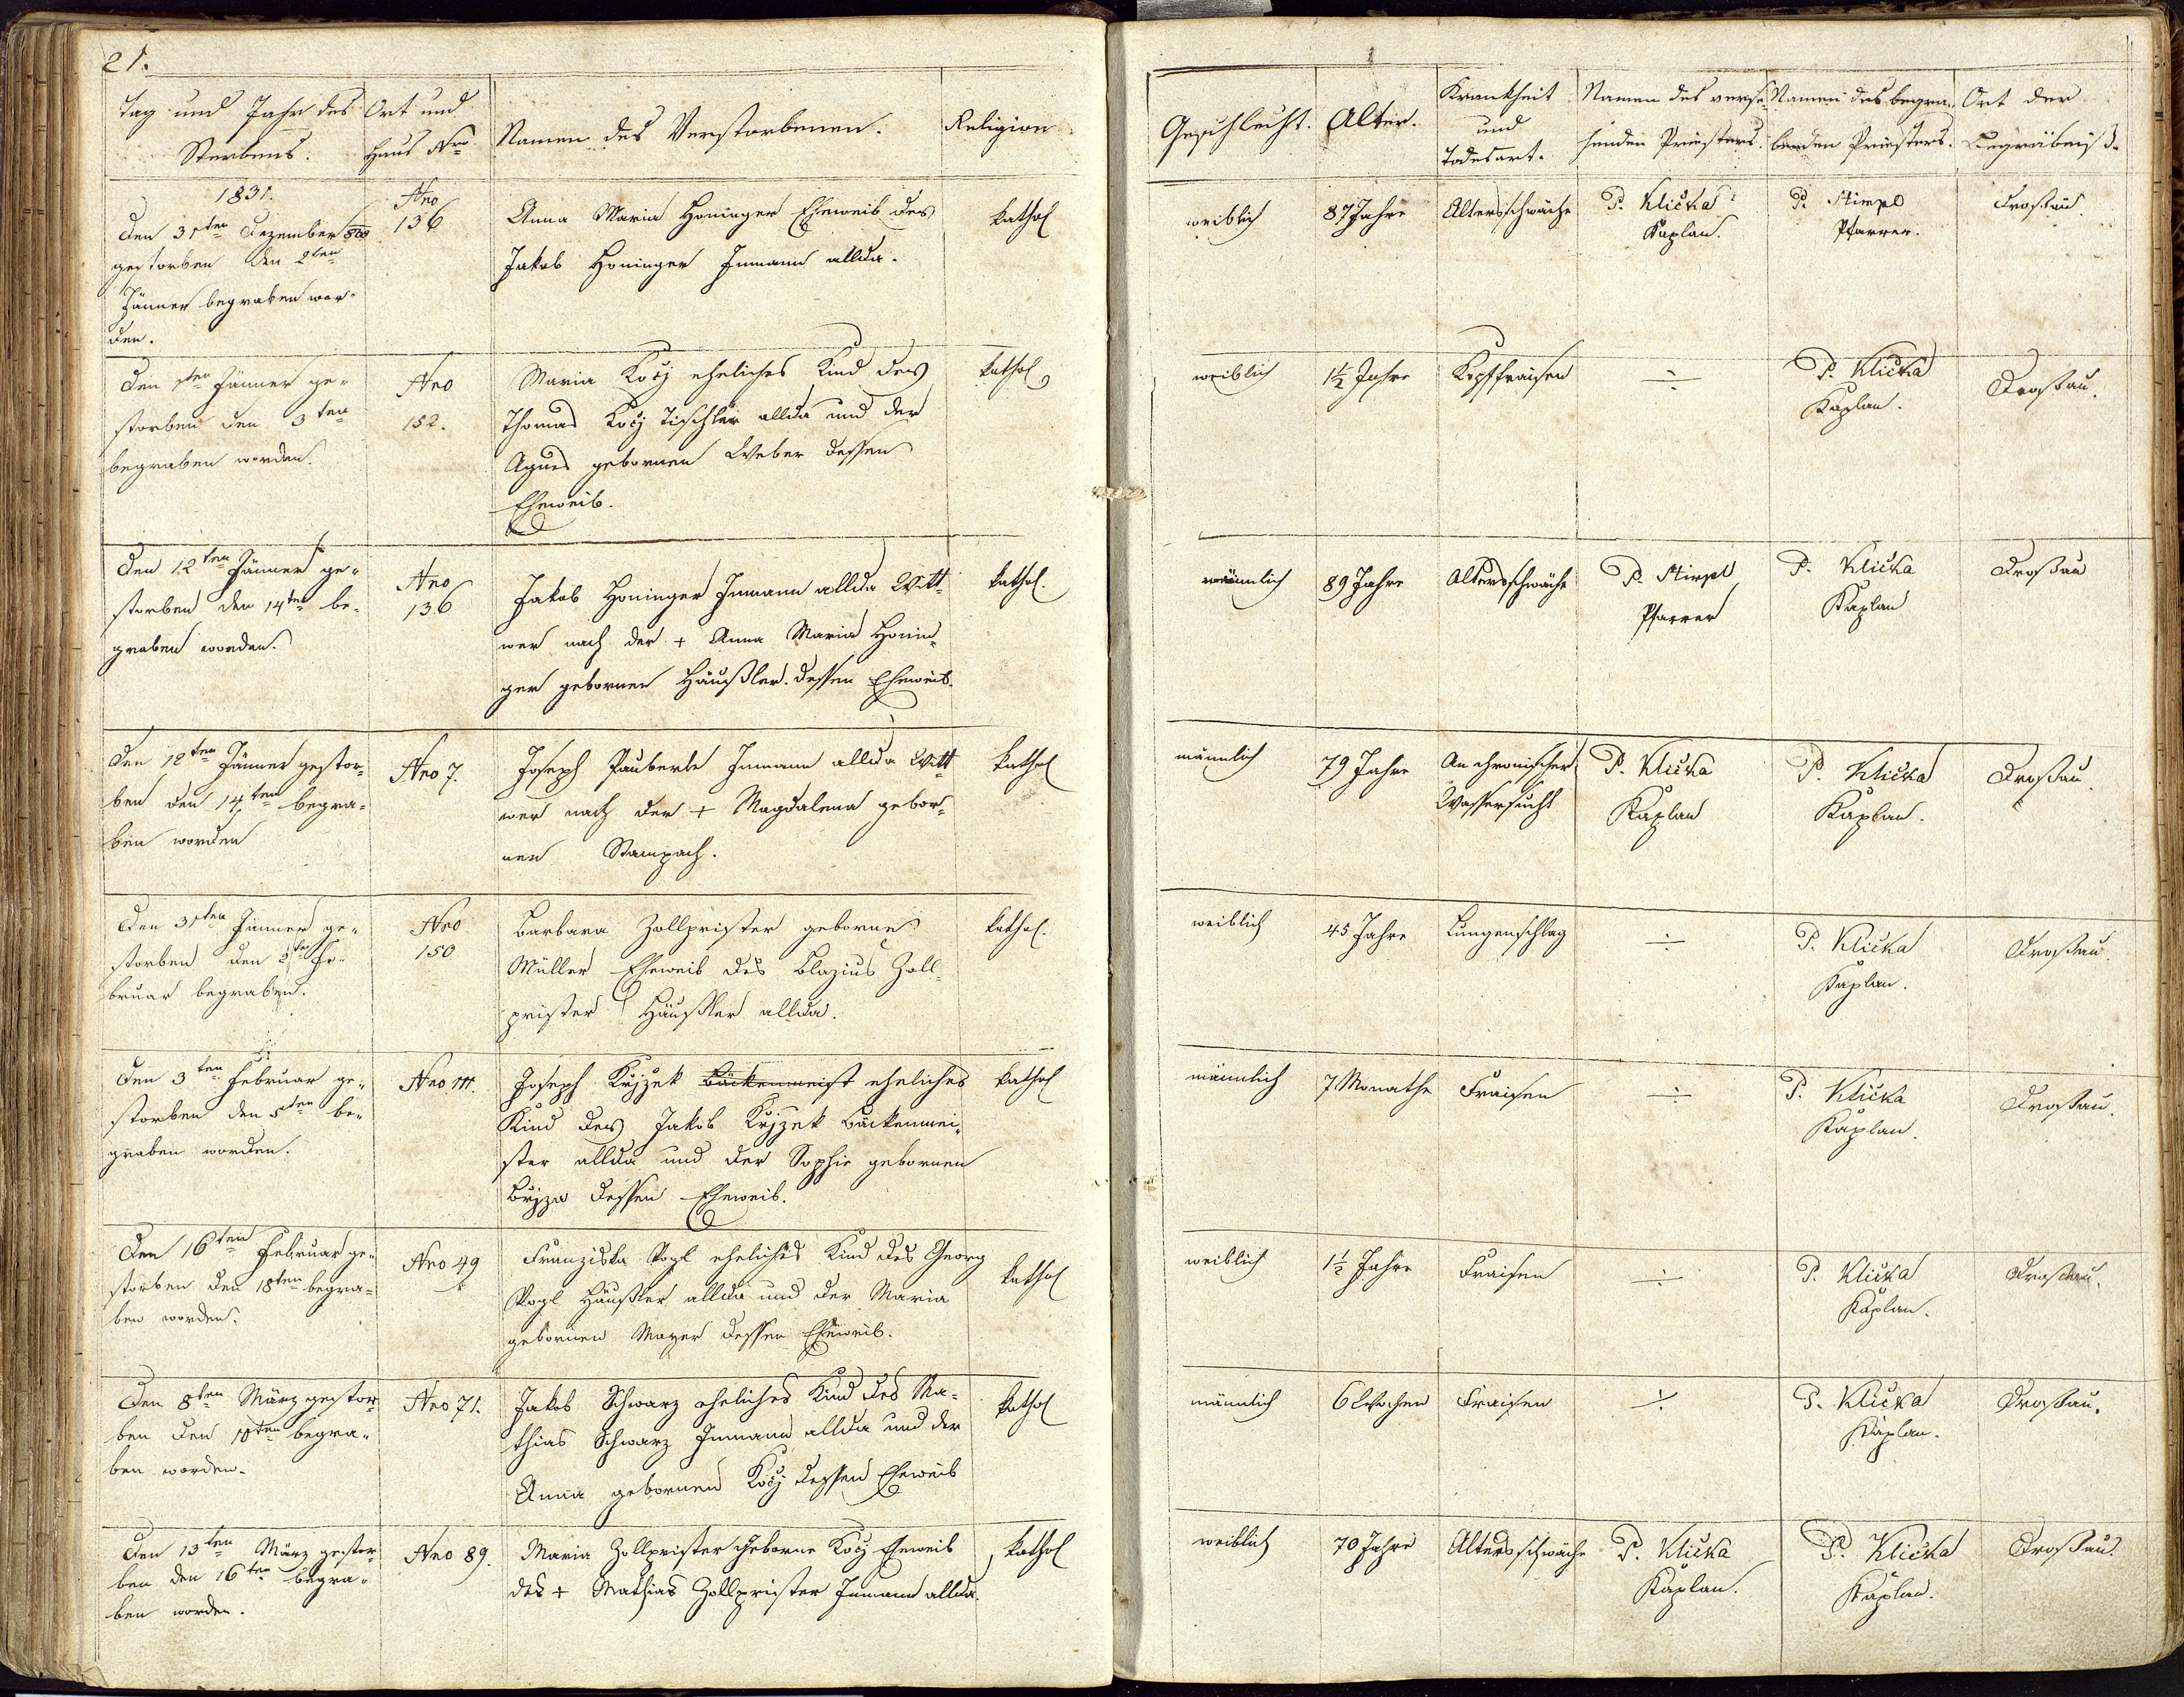 21.
Tag und Jahr des Sterbens. | Ort und Haus Nro | Namen des Verstorbenen. | Religion | Geschlecht. | Alter. | Krankheit und Todesart. | Namen des versehenden Priesters. | Namen des begrabenden Priesters. | Ort der Begräbniß.
1831.
Den 31ten Dezember
gestorben den 2ten
Jänner begraben wor-
den.
Nro
136
Anna Maria Honinger Eheweib des
Jakob Honinger Inmann allda.
kathol
weiblich
87 Jahre
Altersschwäche
P. Klička
Kaplan.
P. Stimpl
Pfarrer.
Droßau.
Den 1ten Jänner ge-
storben den 3ten
begraben worden.
Nro
152.
Maria Kočj eheliches Kind des
Thomas Kočj Tischler allda und der
Agnes gebornen Weber dessen
Eheweib.
kathol
weiblich
1½ Jahre
Kopffraisen
÷
P. Klička
Kaplan.
Droßau.
Den 12ten Jänner ge-
storben den 14ten be-
graben worden.
Nro
136
Jakob Honinger Inmann allda Witt-
wer nach der + Anna Maria Honin-
ger gebornen Häußler dessen Eheweib.
kathol.
männlich
89 Jahre
Altersschwäche
P. Stimpl
Pfarrer
P. Klička
Kaplan
Droßau
Den 12ten Jänner gestor-
ben den 14ten begra-
ben worden
Nro 7.
Joseph Pauberle Inmann allda Witt-
wer nach der + Magdalena gebor-
nen Stampach.
kathol
männlich
79 Jahre
An chronischer
Wassersucht
P. Klička
Kaplan
P. Klička
Kaplan.
Droßau.
Den 31ten Jänner ge-
storben den 2ten Fe-
bruar begraben.
Nro
150
Barbara Zollprister geborne
Müller Eheweib des Blazius Zoll-
prister Häußler allda.
kathol.
weiblich
45 Jahre
Lungenschlag
÷
P. Klička
Kaplan.
Droßau.
Den 3ten Februar ge-
storben den 5ten be-
graben worden.
Nro 111.
Joseph Křjzek Bäckenmeist eheliches
Kind des Jakob Křjzek Bäckenmei-
ster allda und der Sophie gebornen
Břjza dessen Eheweib.
kathol
männlich
7 Monathe
Fraisen
÷
P. Klička
Kaplan.
Droßau.
Den 16ten Februar ge-
storben den 18ten begra-
ben worden.
Nro 49
Franziska Vogl eheliches Kind des Georg
Vogl Häußler allda und der Maria
gebornen Mayer dessen Eheweib.
kathol
weiblich
1½ Jahre
Fraisen
÷
P. Klička
Kaplan.
Droßau.
Den 8ten März gestor-
ben den 10ten begra-
ben worden.
Nro 71.
Jakob Schwarz eheliches Kind des Ma-
thias Schwarz Inmann allda und der
Anna gebornen Kočj dessen Eheweib
kathol
männlich
6 Wochen
Fraisen
÷
P. Klička
Kaplan.
Droßau.
Den 13ten März gestor-
ben den 16ten begra-
ben worden.
Nro 89.
Maria Zollprister Geborne Kočj Eheweib
des + Mathias Zollprister Inmann allda.
kathol
weiblich
70 Jahre
Altersschwäche
P. Klička
Kaplan.
P. Klička
Kaplan.
Droßau.